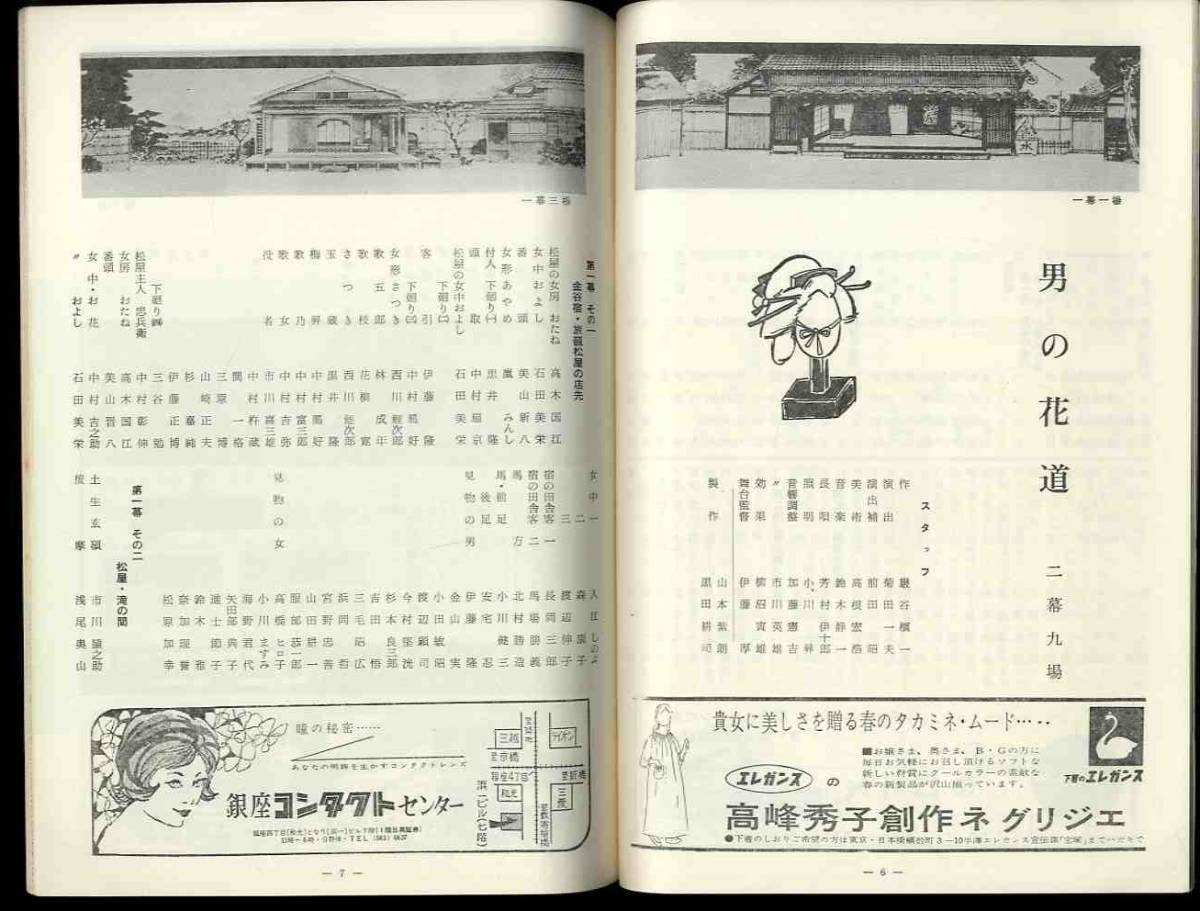 一幕一場
男の花道 二幕九場
スタッフ
作 巌谷槇一
演出 菊田一夫
演出補 前田昭
美術 高根宏浩
音楽 鈴木静一
長唄 芳村伊十郎
照明 小川昇
音響調整 加藤憲吉
効果 市川英雄
〃 柳沼寅雄
舞台監督 伊藤厚
製作 山本紫朗
黒田耕司
貴女に美しさを贈る春のタカミネ・ムード‥‥
■お嬢さま、奥さま、B・Gの方に
毎日お気軽にお召し頂けるソフトな
新しい材質にクールカラーの素敵な
春の新製品が沢山揃っています。
下着のエレガンス
エレガンスの
高峰秀子創作ネグリジエ
●下着のしおりご希望の方は東京・日本橋横山町3—10半澤エレガンス宣伝課「宝塚」までハガキで
— 6 —
一幕三場
第一幕 その一
金谷宿・旅籠松屋の店先
松屋の女房 おたね 高木国江
女中およし 石田美栄
番頭 美山新八
女形あやめ 嵐みんし
付人 下廻り㈠ 黒井扇京
頭取 中村
松屋の女中およし 石田美栄
下廻り㈡
客引 伊藤隆
下廻り㈢ 中村
女形さつき 西川鯉次郎
歌五郎 林成年
歌枝 花柳寛
さつき 西川鯉次郎
玉蔵 黒井隆
梅昇 中村鴈好
歌乃 中村富三郎
歌女 中村吉弥
役名 市川喜三雄
中村杵蔵
間一格
三原博
山崎正夫
杉嘉純
伊藤正博
下廻り㈣ 三谷勉
松屋主人 忠兵衛 中村彰伸
女房 おたね 高木国江
番頭 美山晋八
女中・お花 中村吉之助
〃 およし 石田美栄
女中一 入江しのぶ
二 森康子
三 渡辺伸子
宿の田舎客一 長岡三郎
宿の田舎客二 馬場勝義
馬方 北村勝造
馬・前足 小川健三
後足 安宅忍
見物の男 伊藤隆
金井実
小田敏昭
渡辺顕司
今村堅洸
杉本良三郎
吉田悟
三毛昭広
浜野哲
宮田忠善
山野耕一
服部恭一郎
見物の女 高橋ヒロ子
小川ますみ
海野君代
矢田部典子
進士節子
鈴木雅
奈加理誉
松原加幸
第一幕 その二
松屋・滝の間
土生玄碩 市川猿之助
按摩 浅尾奥山
瞳の秘密……
あなたの明眸を生かすコンタクトレンズ
銀座コンタクトセンター
銀座四丁目(和光)となり(浜一)ビル7階(1階日興証券)
浜一ビル(七階)
三越
ライオン
至京橋
銀座4丁目
至新橋
和光
三菱
至数寄屋橋
— 7 —